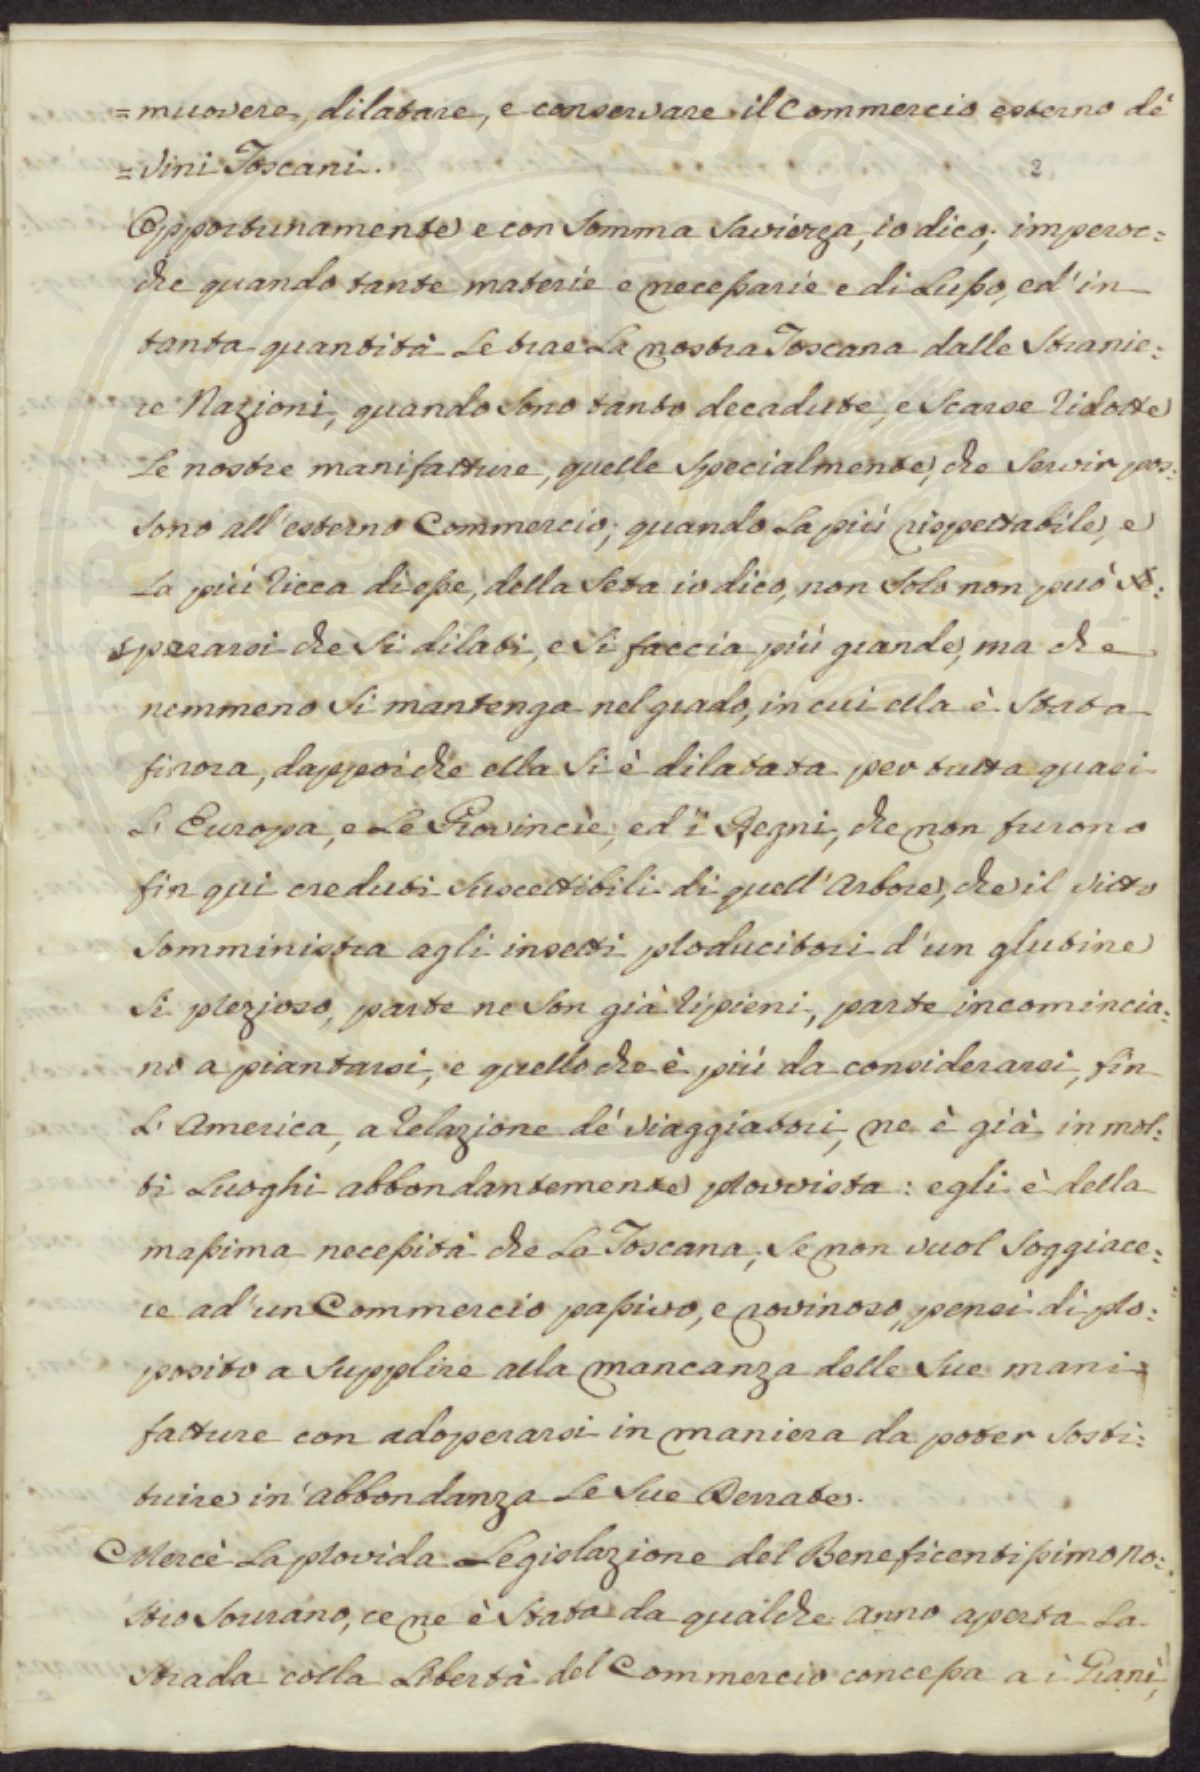 =muovere, dilatare, e conservare il Commercio esterno de'
=Vini Toscani.
2
Opportunamente e con Somma Saviezza, io dico; imperoc=
che quando tante materie e neceßarie e di Lußo, ed' in
tanta quantità Le trae La nostra Toscana dalle Stranie=
re Nazioni, quando Sono tanto decadute, e Scarse ridotte
Le nostre manifatture, quelle Specialmente, che Servir pos=
sono all' esterno Commercio; quando La più rispettabile, e
La più ricca di eße, della Seta io dico, non Solo non può
sperarsi che Si dilati, e Si faccia più grande, ma che
nemmeno Si mantenga nel grado, in cui ella è Stata
finora, dappoiche ella Si è dilatata per tutta quasi
L' Europa, e Le Provincie, ed' i Regni, che non furono
fin qui creduti Suscettibili di quell' Arbore, che il Vitto
Somministra agli insetti producitori d' un glutine
Si prezioso, parte ne Son già ripieni, parte incomincia=
no a piantarsi, e quello che è più da considerarsi, fin
L' America, a relazione de' Viaggiatori, ne è già in mol=
ti Luoghi abbondantemente provvista: egli è della
maßima neceßità che La Toscana, Se non vuol Soggiace=
re ad' un Commercio paßivo, e rovinoso, pensi di pro=
posito a Supplire alla mancanza delle Sue mani=
fatture con adoperarsi in maniera da poter Sosti=
tuire in' abbondanza Le Sue Derrate.
Mercè La provida Legislazione del Beneficentißimo no=
stro Sovrano, ce ne è Stata da qualche anno aperta La
Strada colla Libertà del Commercio conceßa a i Grani,